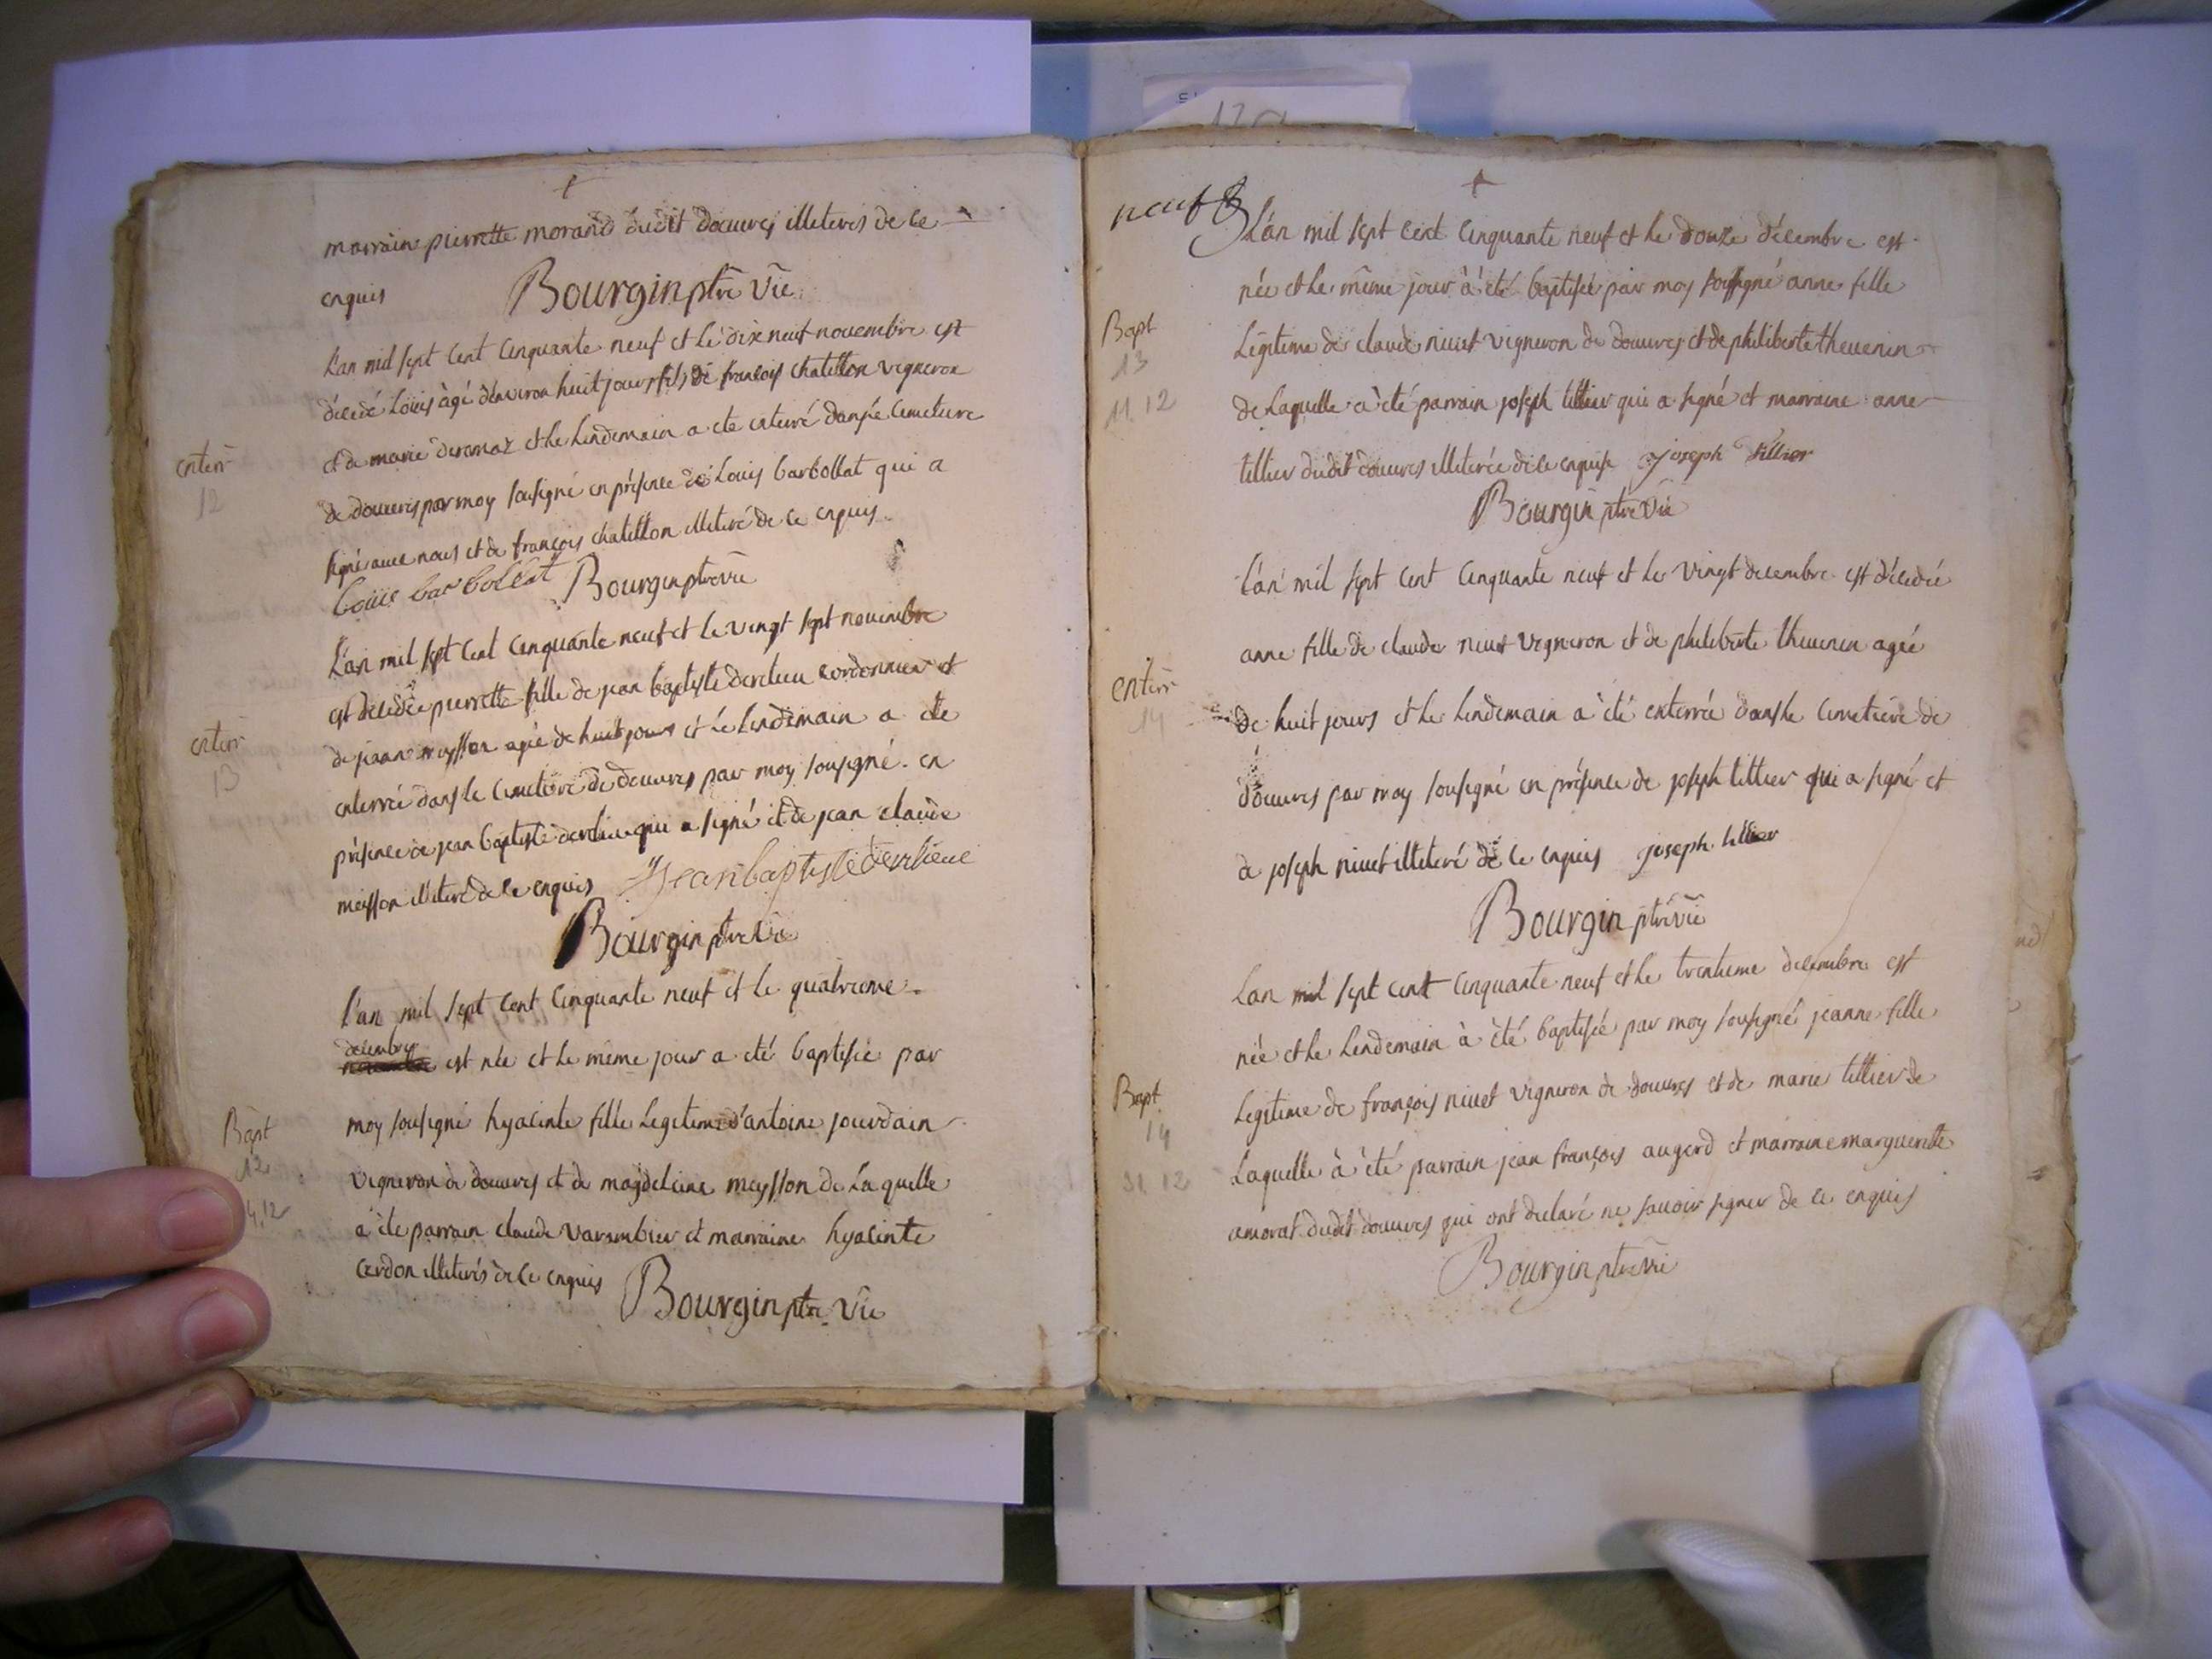 marraine pierrette morand dudit douvres illiterés de ce
enquis Bourgin ptre vic
L'an mil sept cent cinquante neuf et le dix neuf novembre est
décédé Louis àgé d'environ huit jours fils de françois chatillon vigneron
et de marie deromaz et le lendemain a ete enterré dans le cimetiere
enterr
12
de douvres par moy sousigné en présence de Louis barbollat qui a
signé avec nous et de françois chatillon illiteré de ce enquis
Louis barbollat Bourgin ptre vic
L'an mil sept cent cinquante neuf et le vingt sept novembre
est décédée pierrette fille de jean baptiste derelieu cordonnier et
de jeanne meysson agée de huit jours et le lendemain a ete
enterr
13
enterrée dans le cimetiere de douvres par moy sousigné en
présence de jean baptiste qui a signé et de jean claude
meysson illiteré de ce enquis jean baptiste
Bourgin ptre vic
L'an mil sept cent cinquante neuf et le quatrieme
decembre
novembre est née et le même jour a eté baptisée par
moy sousigné hyacinte fille Legitime d'antoine jourdain
Bapt
12
4.12
vigneron de douvres et de magdeleine meysson de Laquelle
a ete parrain claude varembier et marraine hyacinte
cardon illiterés de ce enquis Bourgin ptre vic
neuf
L'an mil sept cent cinquante neuf et le douze décembre est
née et le même jour à été baptisée par moy sousigné anne fille
Bapt
13
11.12
Légitime de claude nivet vigneron de douvres et de philiberte thevenin
de Laquelle a été parrain joseph tillier qui a signé et marraine anne
tillier dudit douvres illiterée de ce enquise joseph tillier
Bourgin ptre vic
L'an mil sept cent cinquante neuf et le vingt decembre est décédée
anne fille de claude nivet vigneron et de philiberte thevenin agée
enterr
14
de huit jours et le lendemain a été enterrée dans le cimetiere de
douvres par moy sousigné en présence de joseph tillier qui a signé et
de joseph nivet illiteré de ce enquis joseph tillier
Bourgin ptre vic
L'an mil sept cent cinquante neuf et le trentieme decembre est
née et le lendemain à été baptisée par moy sousigné jeanne fille
Legitime de françois nivet vigneron de douvres et de marie tillier de
Bapt
14
31.12
Laquelle à été parrain jean françois augerd et marraine marguerite
amorat dudit douvres qui ont declaré ne savoir signer de ce enquis
Bourgin ptre vic